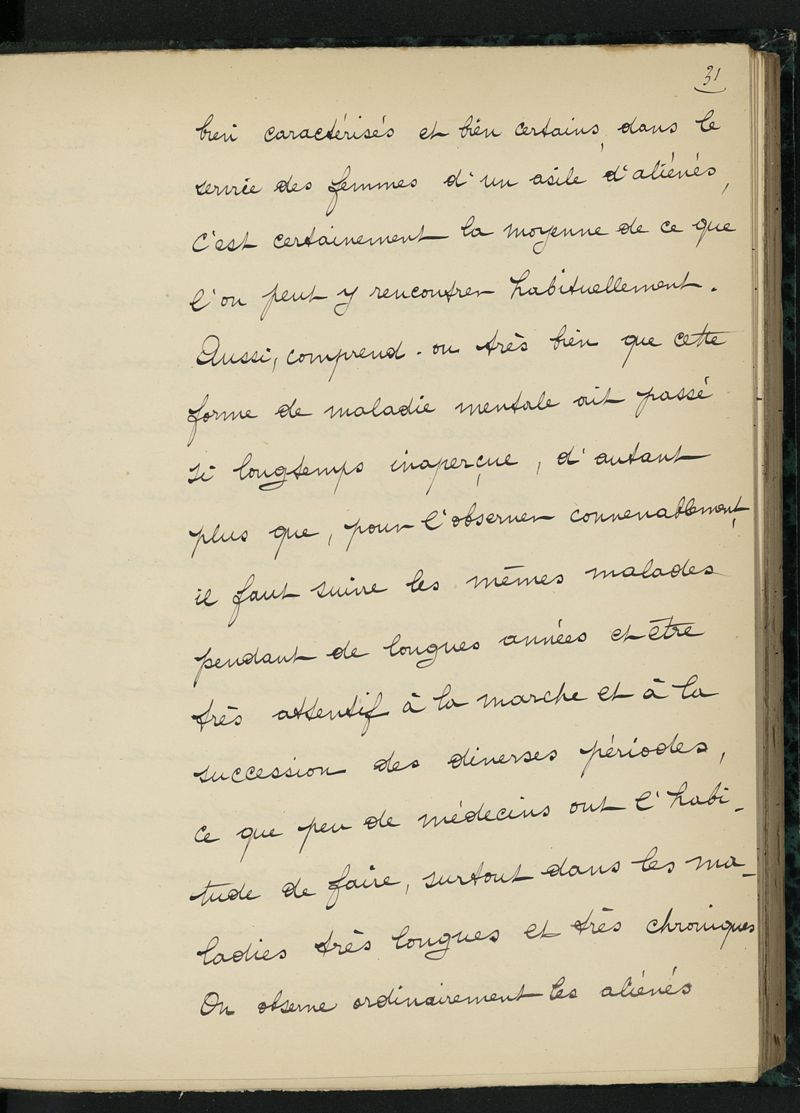 31
bien caractérisés et bien certains, dans le
service des femmes d'un asile d'aliénés,
c'est certainement la moyenne de ce que
l'on peut y rencontrer habituellement.
Aussi, comprend-on très bien que cette
forme de maladie mentale ait passé
si longtemps inaperçue, d'autant
plus que, pour l'observer convenablement,
il faut suivre les mêmes malades
pendant de longues années et être
très attentif à la marche et à la
succession des diverses périodes,
ce que peu de médecins ont l'habi-
tude de faire, surtout dans les ma-
ladies très longues et très chroniques
On observe ordinairement les aliénés